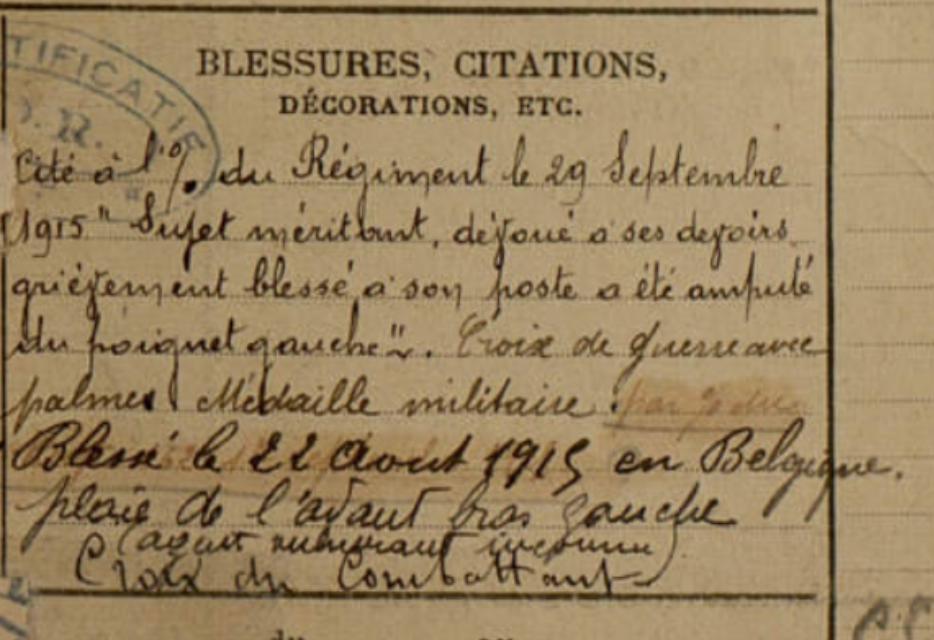 TIFICATIF
BLESSURES, CITATIONS,
DÉCORATIONS, ETC.
Cité à l'o/. du Régiment le 29 Septembre
1915 " Sujet méritant, dévoué à ses devoirs
grièvement blessé à son poste a été amputé
du poignet gauche ". Croix de guerre avec
palmes Médaille militaire.
Blessé le 22 Aout 1915 en Belgique.
plaie de l'avant bras gauche
(agent vulnérant inconnu)
Croix du Combattant